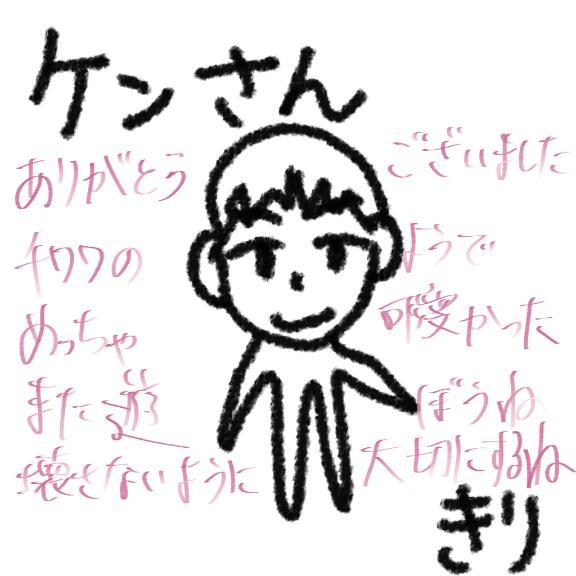 ケンさん
ありがとうございました
チワワのようで
めっちゃ可愛かった
また遊ぼうね
壊さないように大切にするね
きり